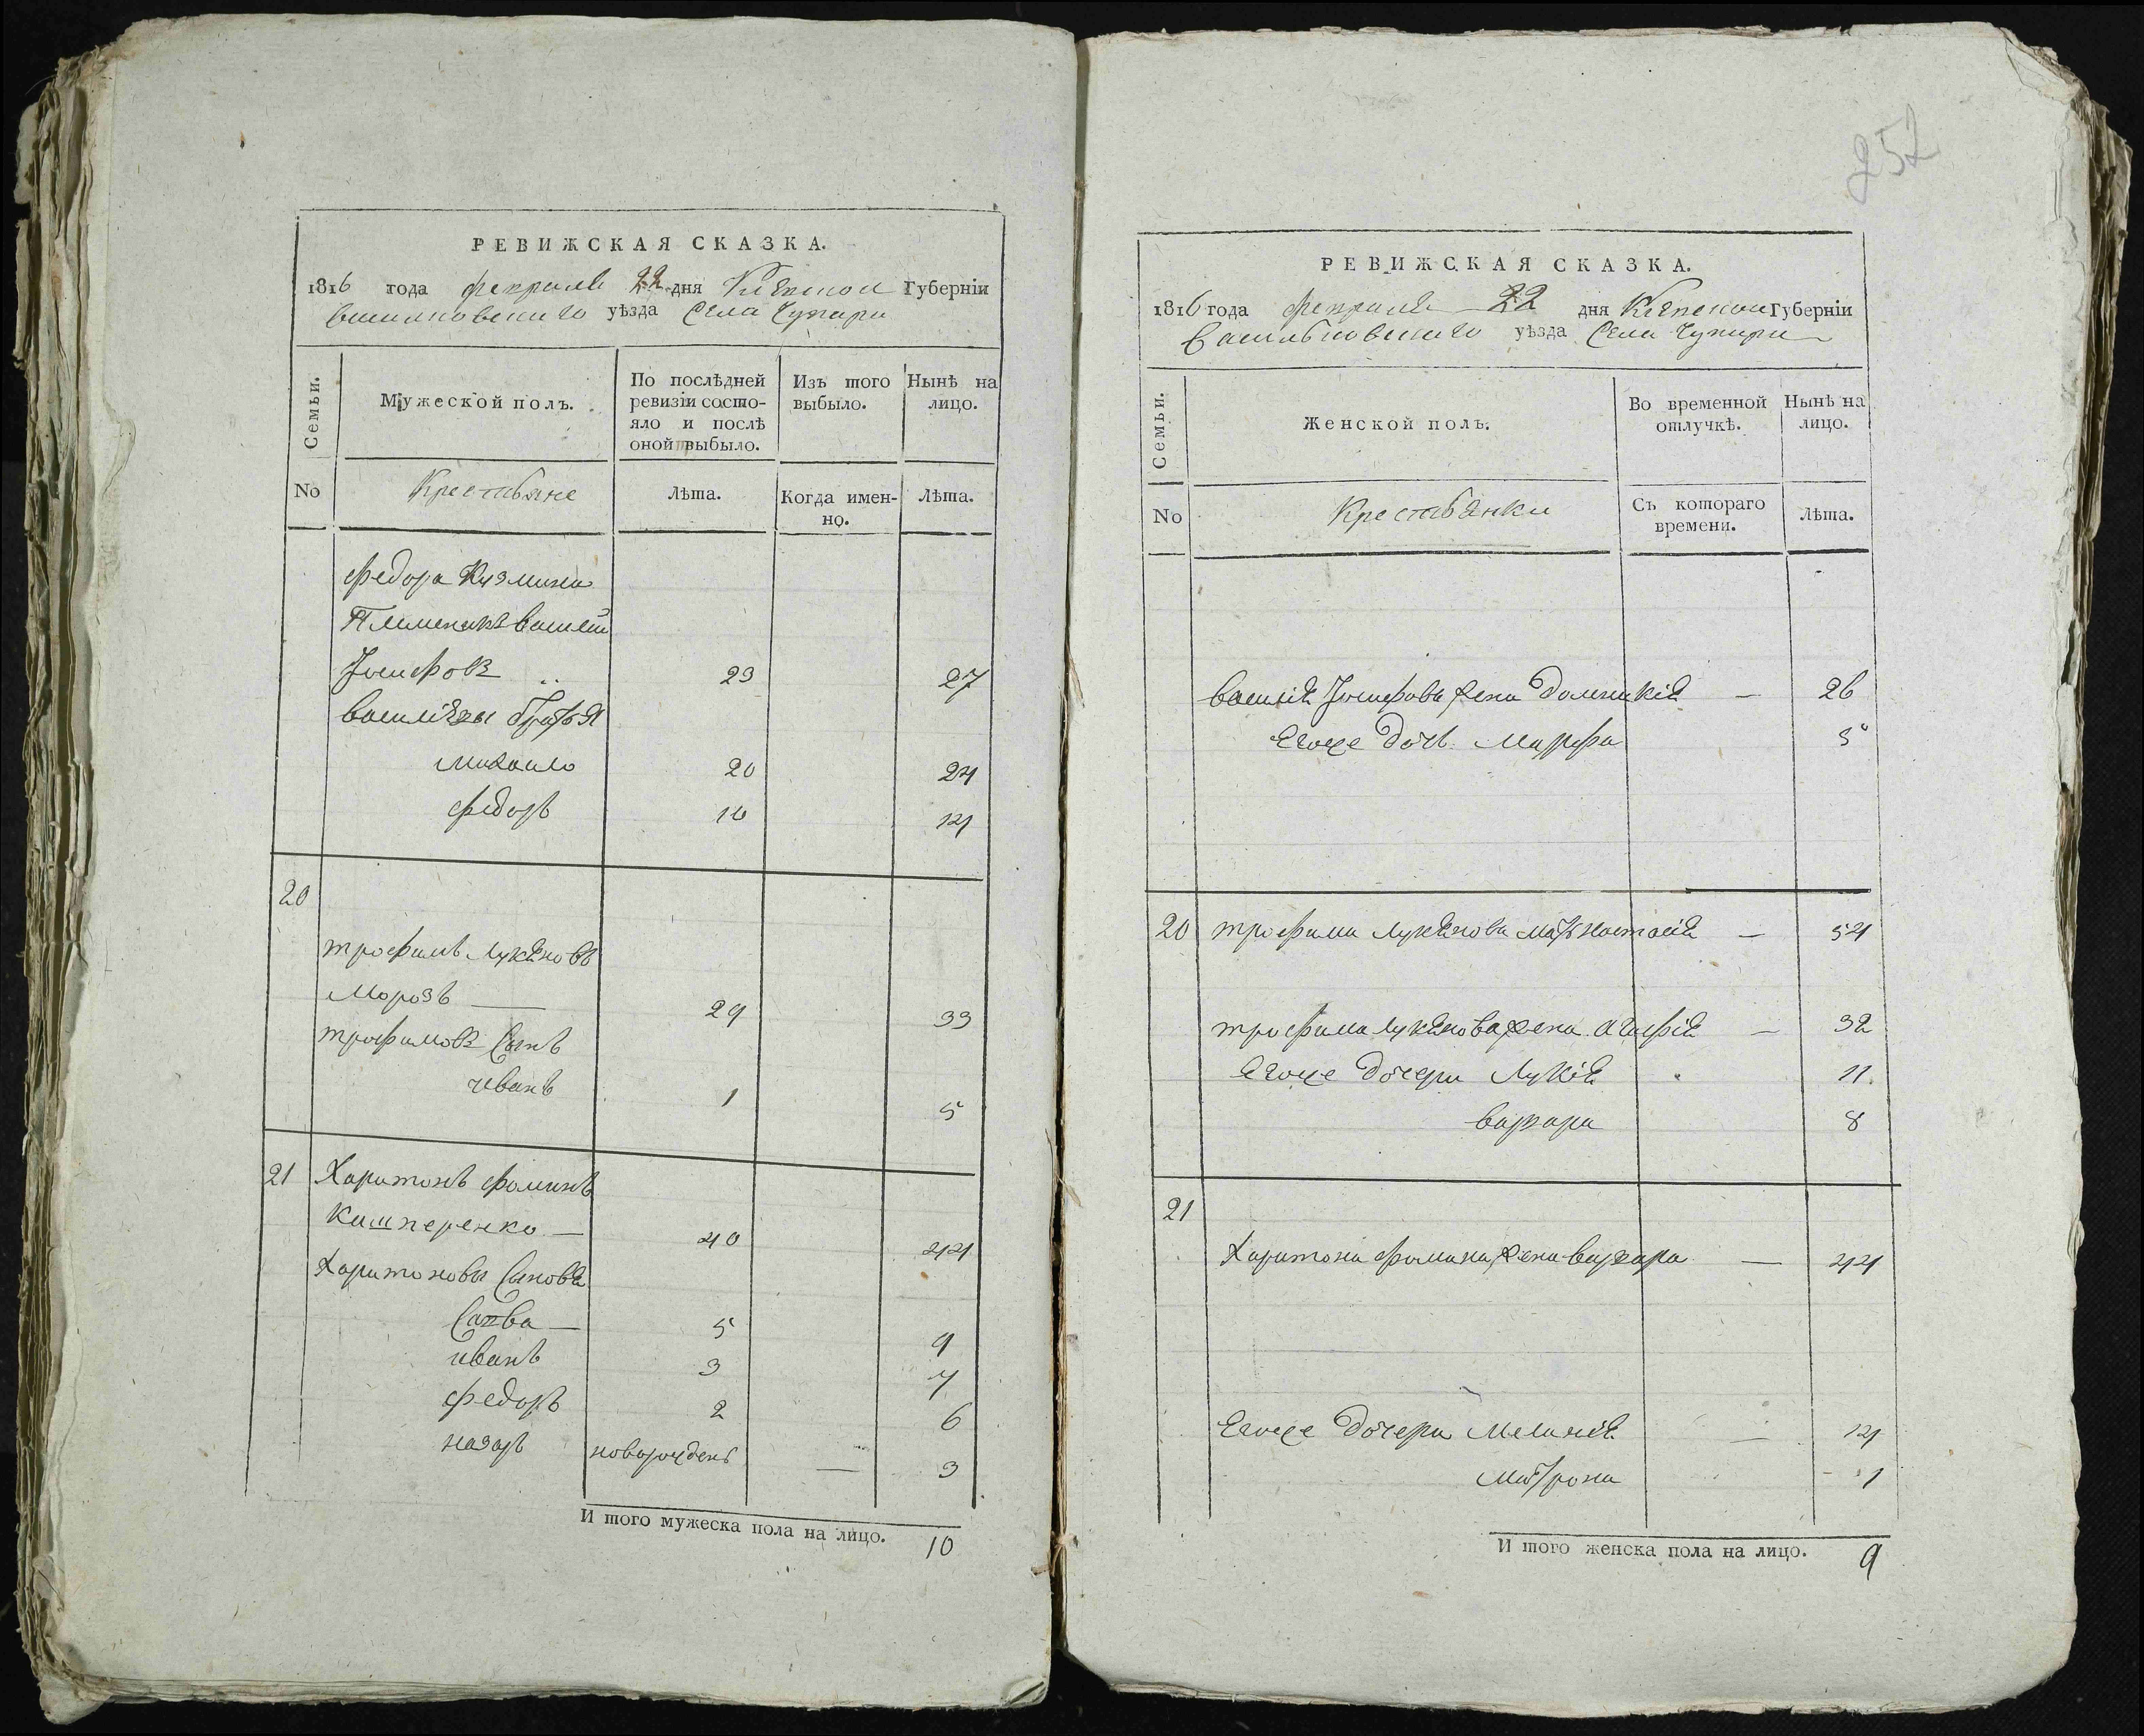 РЕВИЖСКАЯ СКАЗКА.
1816 года февраля 22 дня Киевской Губерніи
васильковскаго уѣзда Села Чупиры
Семьи.
Мужеской полъ.
По послѣдней ревизіи состо-
яло и послѣ
оной выбыло.
Изъ того
выбыло.
Нынѣ на
лицо.
No
Крестьяне
Лѣта.
Когда имен-
но.
Лѣта.
федора Кузмина
Племеникъ васілій
Іосифовъ 23 27
василіевы братья
михаило 20 24
федоръ 10 14
20
трофимъ Лукяновъ
Морозъ — 29 33
трофимовъ Сынъ
иванъ 1 5
21 Харитонъ фоминъ
Кишперенко — 40 44
Харитоновы Сыновя
Савва — 5 9
иванъ 3 7
федоръ 2 6
назаръ новорожденъ — 3
И того мужеска пола на лицо. 10
252
РЕВИЖСКАЯ СКАЗКА.
1816 года февраля 22 дня Киевской Губерніи
Васильковскаго уѣзда Села Чупиры
Семьи.
Женской полъ.
Во временной
отлучкѣ.
Нынѣ на
лицо.
No
Крестьянки
Съ котораго
времени.
Лѣта.
василія Іосифова жена Домникія — 26
Егоже дочь Марфа 5
20 трофима Лукянова мать настасія — 54
трофима Лукянова жена Агафія — 32
Егоже дочери Лукія 11
варвара 8
21
Харитона фомина жена варвара — 44
Егоже дочери Меланія — 14
матрона 1
И того женска пола на лицо. 9